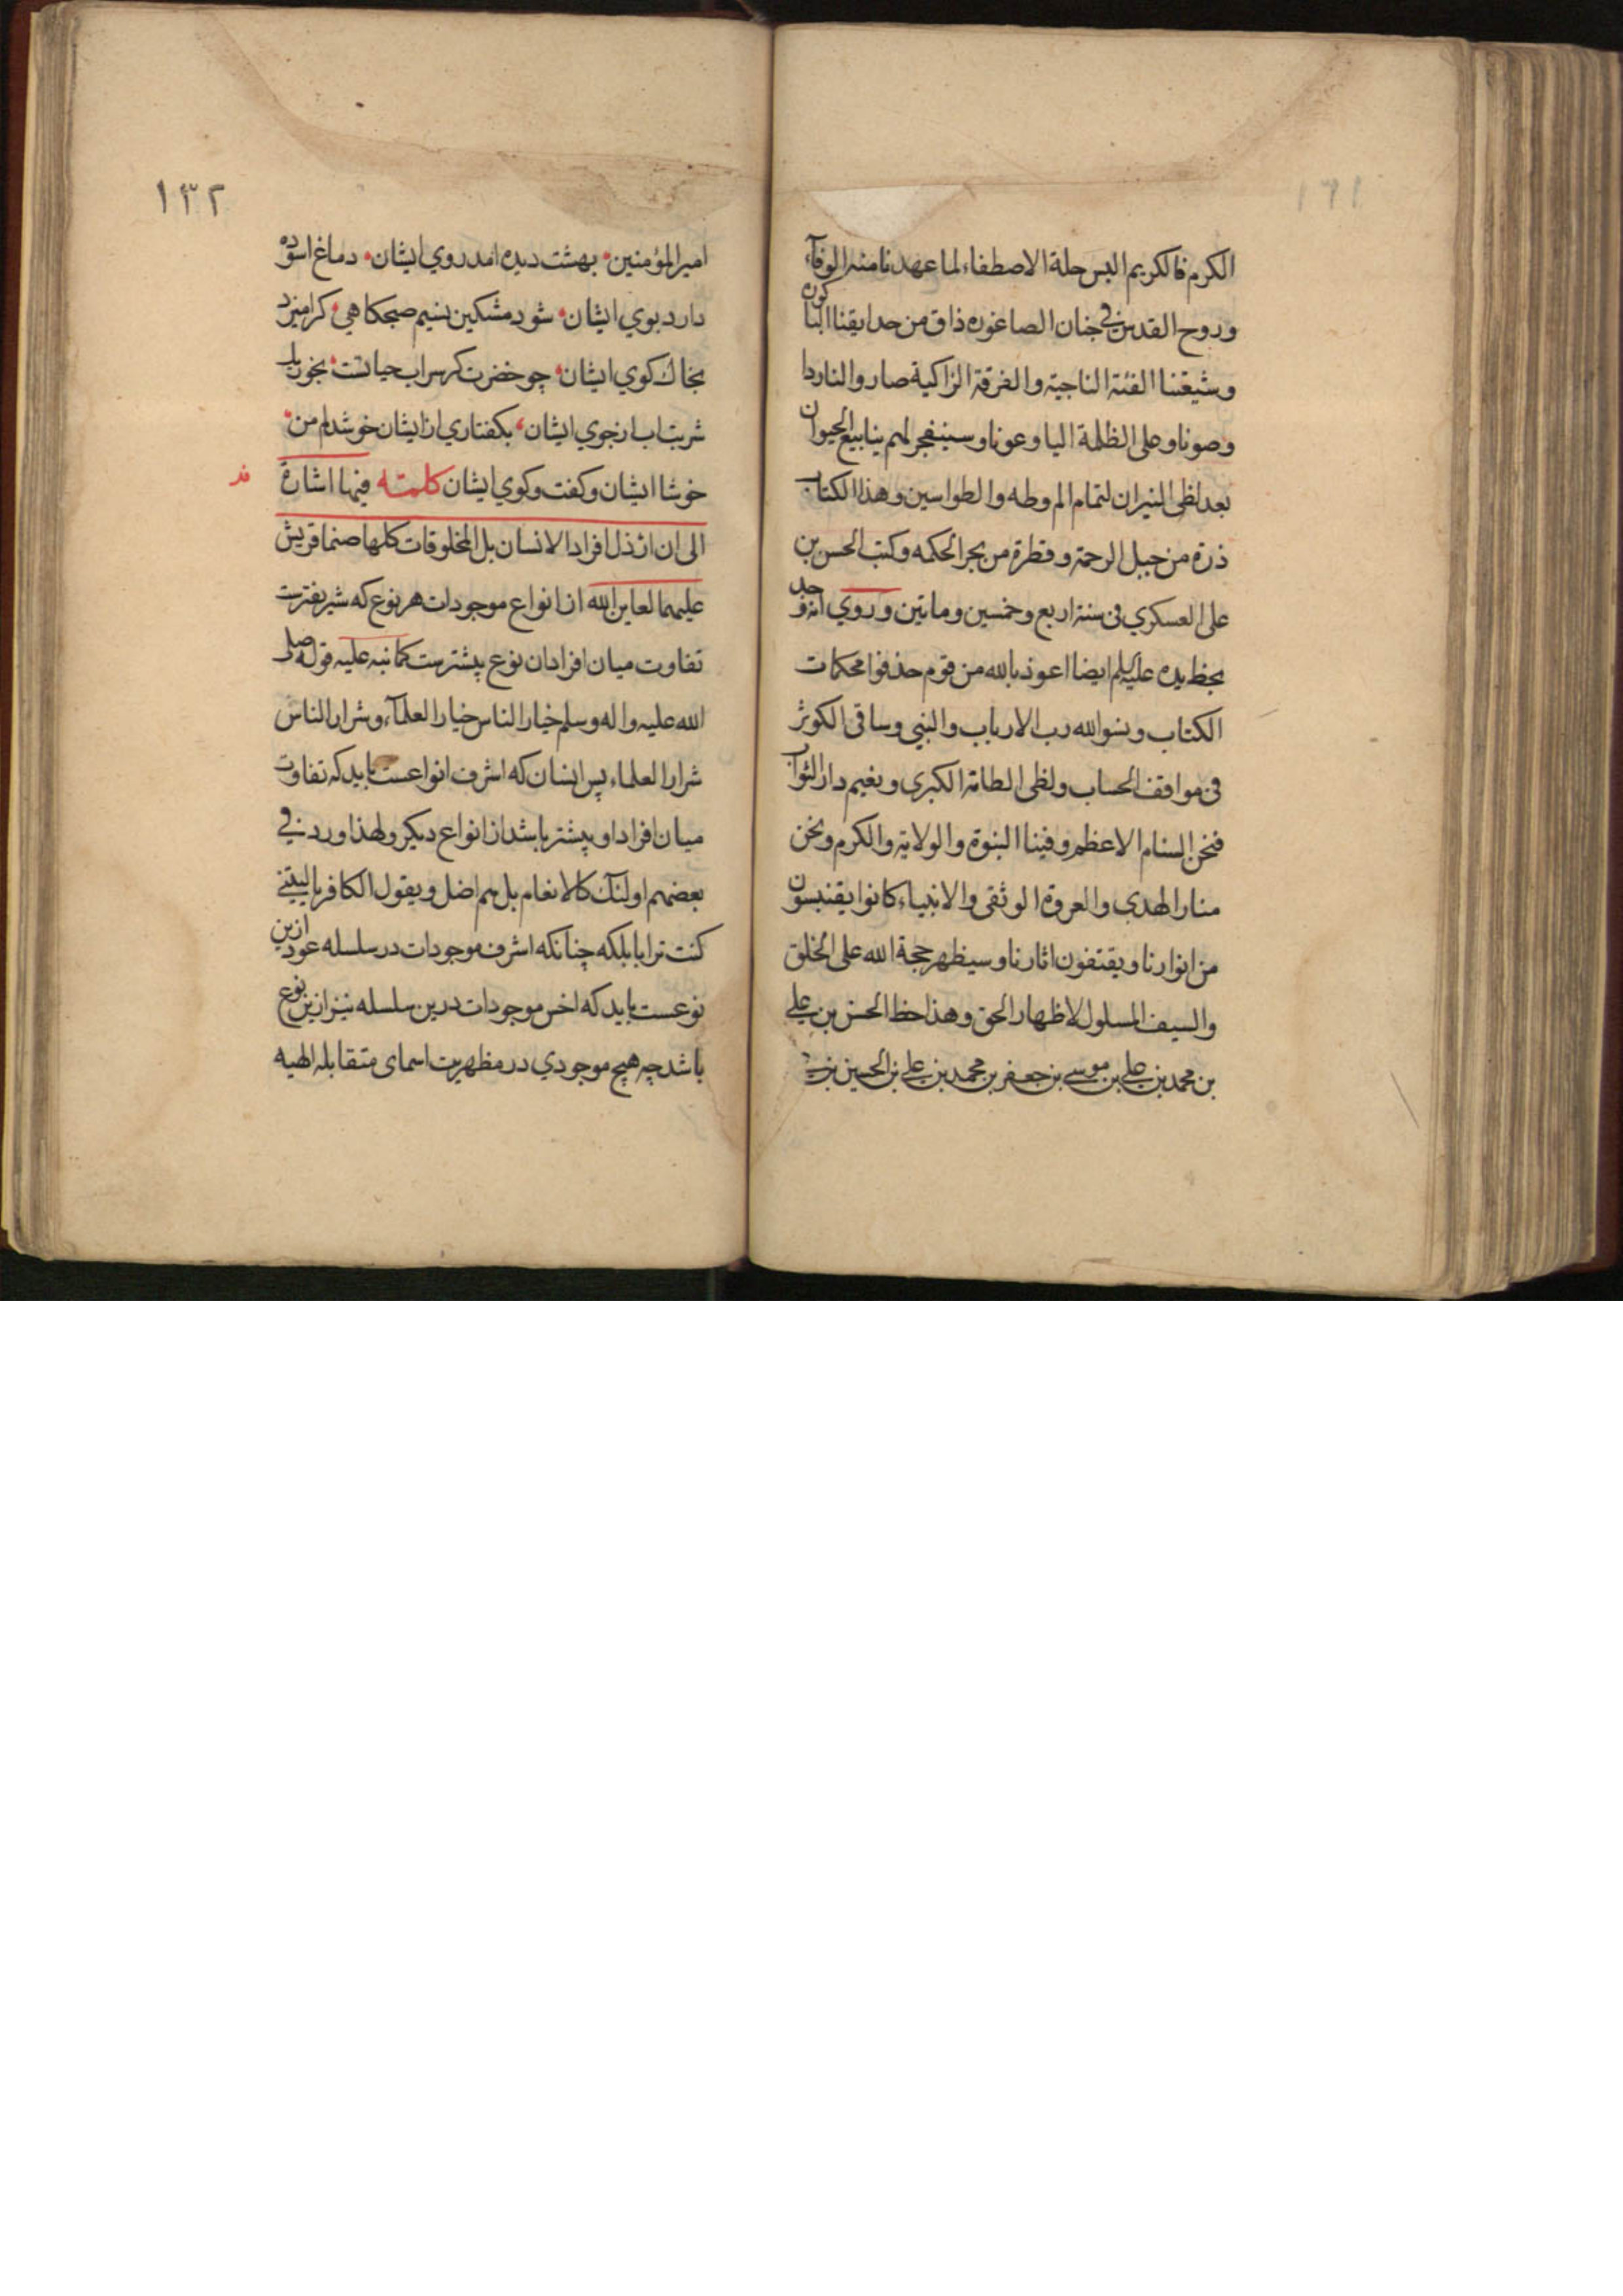 الكرم فالكريم البس حلة الاصطفاء لما عهدنا منه الوفآء
وروح القدس في جنان الصاغوره ذاق من حدايقنا الباكوره
وشيعتنا الفئة الناجية والفرقة الزاكية صاروا لنا ردا
وصونا وعلى الظلمة البا وعونا وسينفجر لهم ينابيع الحيوان
بعد لظى النيران لتمام الم وطه والطواسين وهذا الكتاب
ذرة من جبل الرحمة وقطرة من بحر الحكمه وكتب الحسن بن
على العسكري فى سنة اربع وخمسين وماتين وروي انه وجد
بخط يده عليه السلم ايضا اعوذ بالله من قوم حذفوا محكمات
الكتاب ونسوا الله رب الارباب والنبي وساقى الكوثر
فى مواقف الحساب ولظى الطامة الكبرى ونعيم دار الثواب
فنحن السنام الاعظم وفينا النبوة والولاية والكرم ونحن
منار الهدى والعروة الوثقى والانبياء كانوا يقتبسون
من انوارنا ويقتفون اثارنا وسيظهر حجة الله على الخلق
والسيف المسلول لاظهار الحق وهذا خط الحسن بن علي
بن محمد بن علي بن موسى بن جعفر بن محمد بن علي بن الحسين بن
١٣٢
امير المؤمنين بهشت ديده امد روي ايشان دماغ اسوده
دارد بوي ايشان شود مشكين نسيم صبحكاهي كر اميزد
بخاك كوي ايشان چو خضرت كر سراب حياتست بخور يك
شربت اب از جوي ايشان بكفتاري از ايشان خوشدلم من
خوشا ايشان وكفت وكوي ايشان كلمته فيها اشارة
الى ان ارذل افراد الانسان بل المخلوقات كلها صنما قريش
عليهما لعاين الله از انواع موجودات هر نوع كه شريفترست
تفاوت ميان افراد ان نوع بيشترست كما نبه عليه قوله صلى
الله عليه واله وسلم خيار الناس خيار العلمآء وشرار الناس
شرار العلماء پس انسان كه اشرف انواعست بايد كه تفاوت
ميان افراد او بيشتر باشد از انواع ديكر ولهذا ورد في
بعضهم اولئك كالانعام بل هم اضل ويقول الكافر يا ليتني
كنت ترابا بلكه چنانكه اشرف موجودات در سلسله عود ازين
نوعست بايد كه اخس موجودات درين سلسله نيز ازين نوع
باشد چه هيچ موجودي در مظهريت اسماى متقابله الهيه